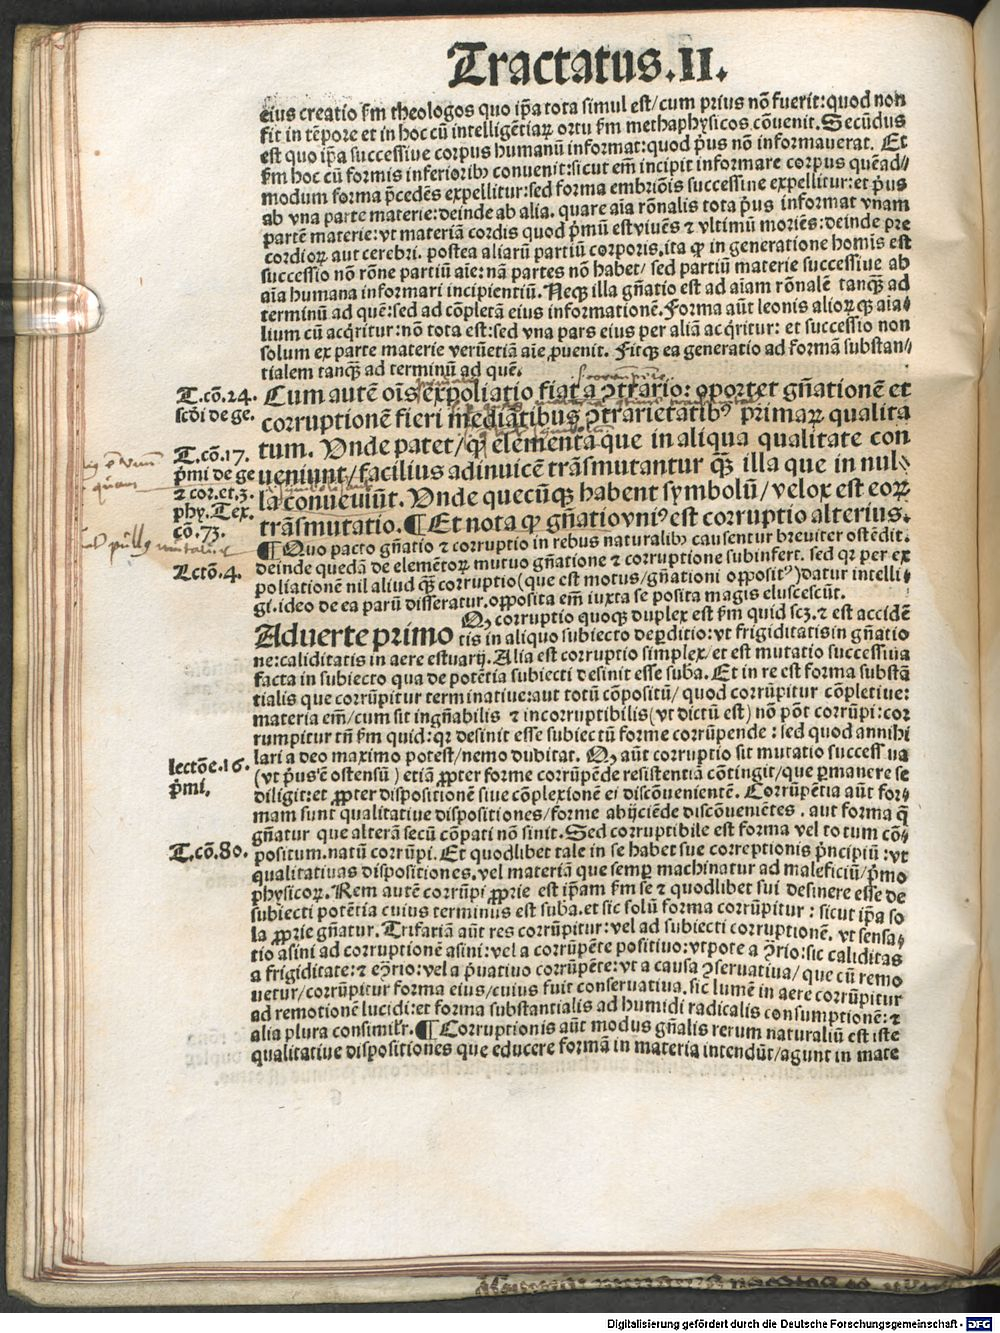 Tractatus.II.
eius creatio s̃m theologos quo ip̃a tota simul est/cum prius nõ fuerit:quod non
fit in tẽpore et in hoc cũ intelligẽtiaꝝ ortu s̃m methaphysicos cõuenit. Secũdus
est quo ip̃a successiue corpus humanũ informat:quod p̃us nõ informauerat. Et
s̃m hoc cũ formis inferioribꝰ conuenit:sicut em̃ incipit informare corpus quẽad/
modum forma p̃cedẽs expellitur:sed forma embriõis successiue expellitur:et p̃us
ab vna parte materie:deinde ab alia. quare aĩa rõnalis tota p̃us informat vnam
partẽ materie:vt materiã cordis quod p̃mũ est viuẽs ⁊ vltimũ moriẽs:deinde pre
cordioꝝ aut cerebri. postea aliarũ partiũ corporis.ita ꝙ in generatione homĩs est
successio nõ rõne partiũ aĩe:nã partes nõ habet/ sed partiũ materie successiue ab
aĩa humana informari incipientiũ. Neqꝫ illa gñatio est ad aĩam rõnalẽ tanqꝫ ad
terminũ ad quẽ:sed ad cõpletã eius informationẽ. Forma aũt leonis alioꝝqꝫ aĩa-
lium cũ acq̃ritur:nõ tota est:sed vna pars eius per aliã acq̃ritur: et successio non
solum ex parte materie verũetiã aĩe ꝓuenit. Fitqꝫ ea generatio ad formã substan/
tialem tanqꝫ ad terminũ ad quẽ.
T.cõ.24. Cum autẽ oĩs expoliatio fiat a ↄ̃trario: oportet gñationẽ et
scõi de ge. corruptionẽ fieri mediãtibus ↄ̃trarietatibꝰ primaꝝ qualita
T.cõ.17. tum. Vnde patet/ꝙ elementa que in aliqua qualitate con
p̃mi de ge ueniunt/facilius adinuicẽ trãsmutantur qꝫ̃ illa que in nul-
⁊ cor.et.3. la conueniũt. Vnde quecũqꝫ habent symbolũ/velox est eoꝝ
phy. Tex. trãsmutatio. ¶ Et nota ꝙ gñatio vniꝰ est corruptio alterius.
cõ.73. ¶ Quo pacto gñatio ⁊ corruptio in rebus naturalibꝰ causentur breuiter ostẽdit.
Lctõ.4. deinde quedã de elemẽtoꝝ mutuo gñatione ⁊ corruptione subinfert. sed qꝛ per ex
poliationẽ nil aliud qꝫ̃ corruptio(que est motus/gñationi oppositꝰ)datur intelli-
gi.ideo de ea parũ disseratur.opposita em̃ iuxta se posita magis eluscescũt.
Aduerte primo Qꝫ corruptio quoqꝫ duplex est s̃m quid scꝫ.⁊ est accidẽ
tis in aliquo subiecto deperditio:vt frigiditatis in gñatio
ne:caliditatis in aere estuarij. Alia est corruptio simplex/et est mutatio successiua
facta in subiecto qua de potẽtia subiecti desinit esse suba. Et in re est forma substã
tialis que corrũpitur terminatiue:aut totũ cõpositũ/ quod corrũpitur cõpletiue:
materia em̃/cum sit ingñabilis ⁊ incorruptibilis(vt dictũ est) nõ põt corrũpi:cor
rumpitur tñ s̃m quid:qꝛ desinit esse subiectũ forme corrũpende : sed quod annihi
lari a deo maximo potest/nemo dubitat. Qꝫ aũt corruptio sit mutatio successiua
lectõe.16. (vt p̃us ẽ ostensũ) etiã ꝓpter forme corrũpẽde resistentiã cõtingit/que ꝑmanere se
p̃mi. diligit:et ꝓpter dispositionẽ siue cõplexionẽ ei discõuenientẽ. Corrũpẽtia aũt for-
mam sunt qualitatiue dispositiones/forme abijciẽde discõueniẽtes . aut forma q̃
gñatur que alterã secũ cõpati nõ sinit. Sed corruptibile est forma vel totum cõ-
T.cõ.80. positum.natũ corrũpi. Et quodlibet tale in se habet sue correptionis p̃ncipiũ :vt
qualitatiuas dispositiones.vel materiã que semꝑ machinatur ad maleficiũ/p̃mo
physicoꝝ. Rem autẽ corrũpi ꝓprie est ip̃am s̃m se ⁊ quodlibet sui desinere esse de
subiecti potẽtia cuius terminus est suba.et sic solũ forma corrũpitur : sicut ip̃a so
la ꝓprie gñatur. Trifariã aũt res corrũpitur:vel ad subiecti corruptionẽ. vt sensa-
tio asini ad corruptionẽ asini:vel a corrũpẽte positiuo:vtpote a ↄ̃rio:sic caliditas
a frigiditate:⁊ eↄ̃rio:vel a p̃uatiuo corrũpẽte:vt a causa ↄseruatiua/ que cũ remo
uetur/corrũpitur forma eius/cuius fuit conseruatiua. sic lumẽ in aere corrũpitur
ad remotionẽ lucidi:et forma substantialis ad humidi radicalis consumptionẽ:⁊
alia plura consimilr̃. ¶ Corruptionis aũt modus gñalis rerum naturaliũ est iste
qualitatiue dispositiones que educere formã in materia intendũt/agunt in mate
Digitalisierung gefördert durch die Deutsche Forschungsgemeinschaft - DFG